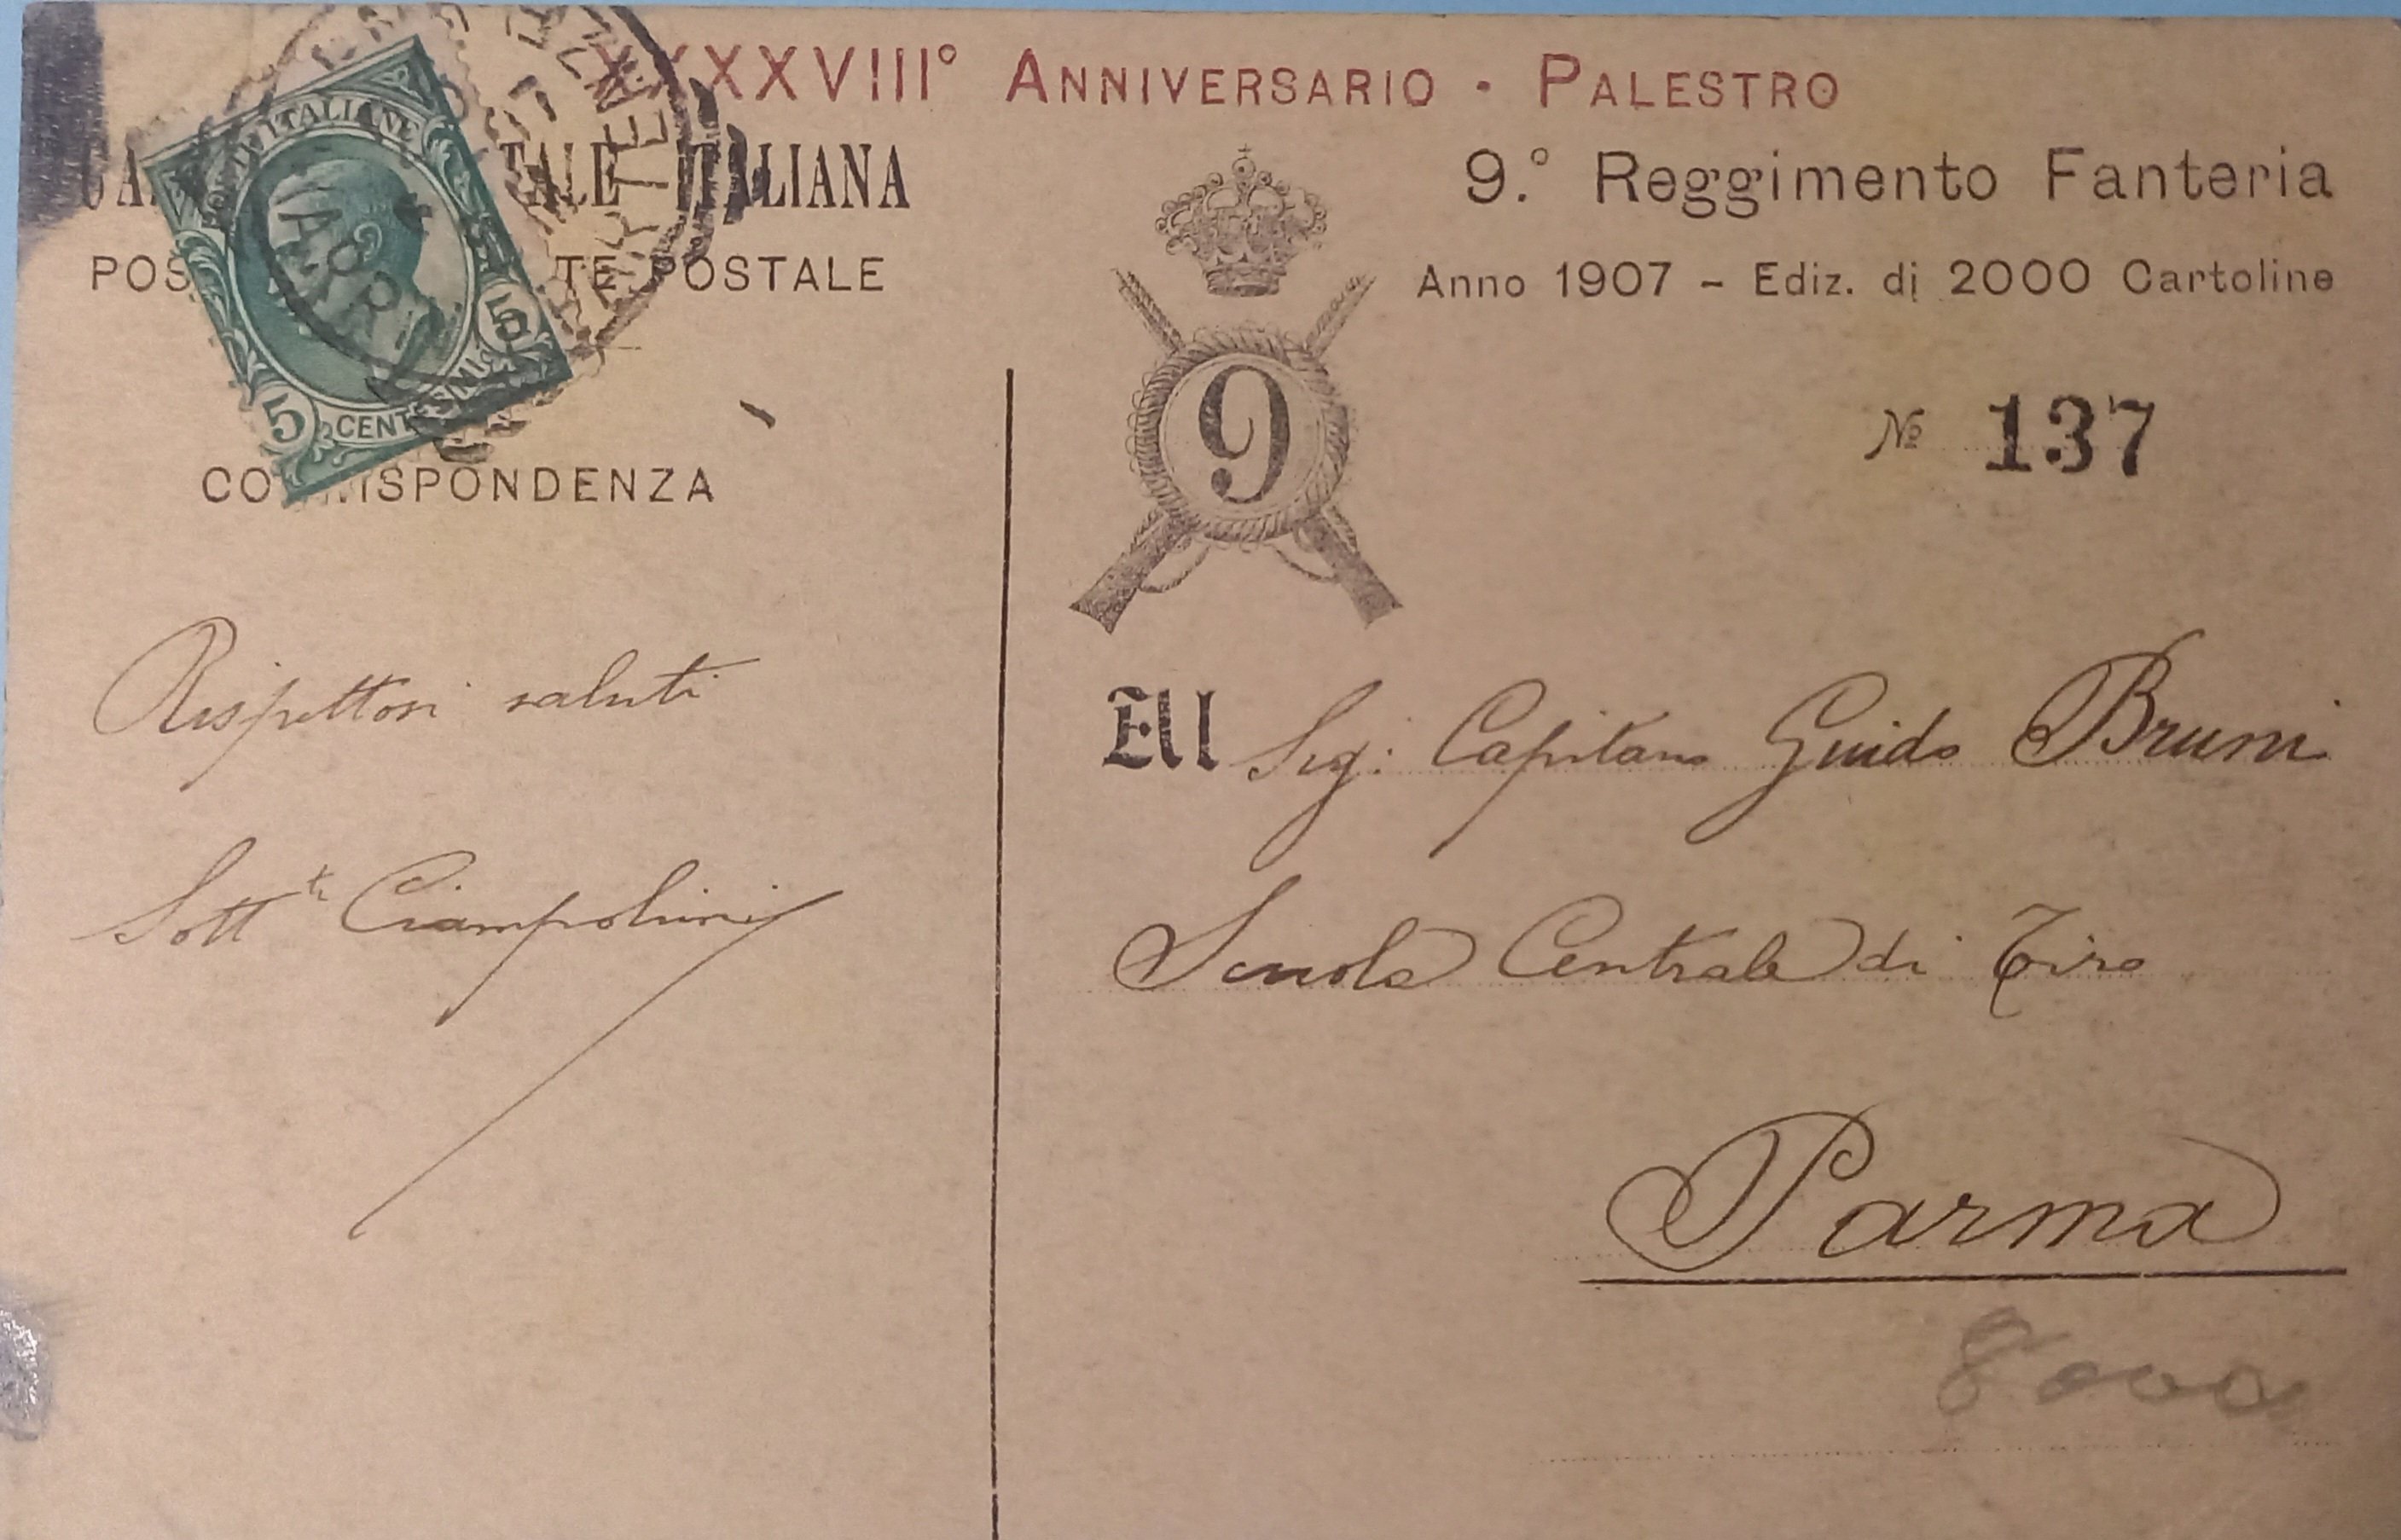 XXXXVIII° ANNIVERSARIO - PALESTRO
TALE ITALIANA
TE POSTALE
CORRISPONDENZA
POSTE ITALIANE
5 CENTESIMI 5
9.° Reggimento Fanteria
Anno 1907 - Ediz. di 2000 Cartoline
9
No 137
Rispettosi saluti
Sott.te Ciampolini
All Sig: Capitano Guido Bruni
Scuola Centrale di Tiro
Parma
8000